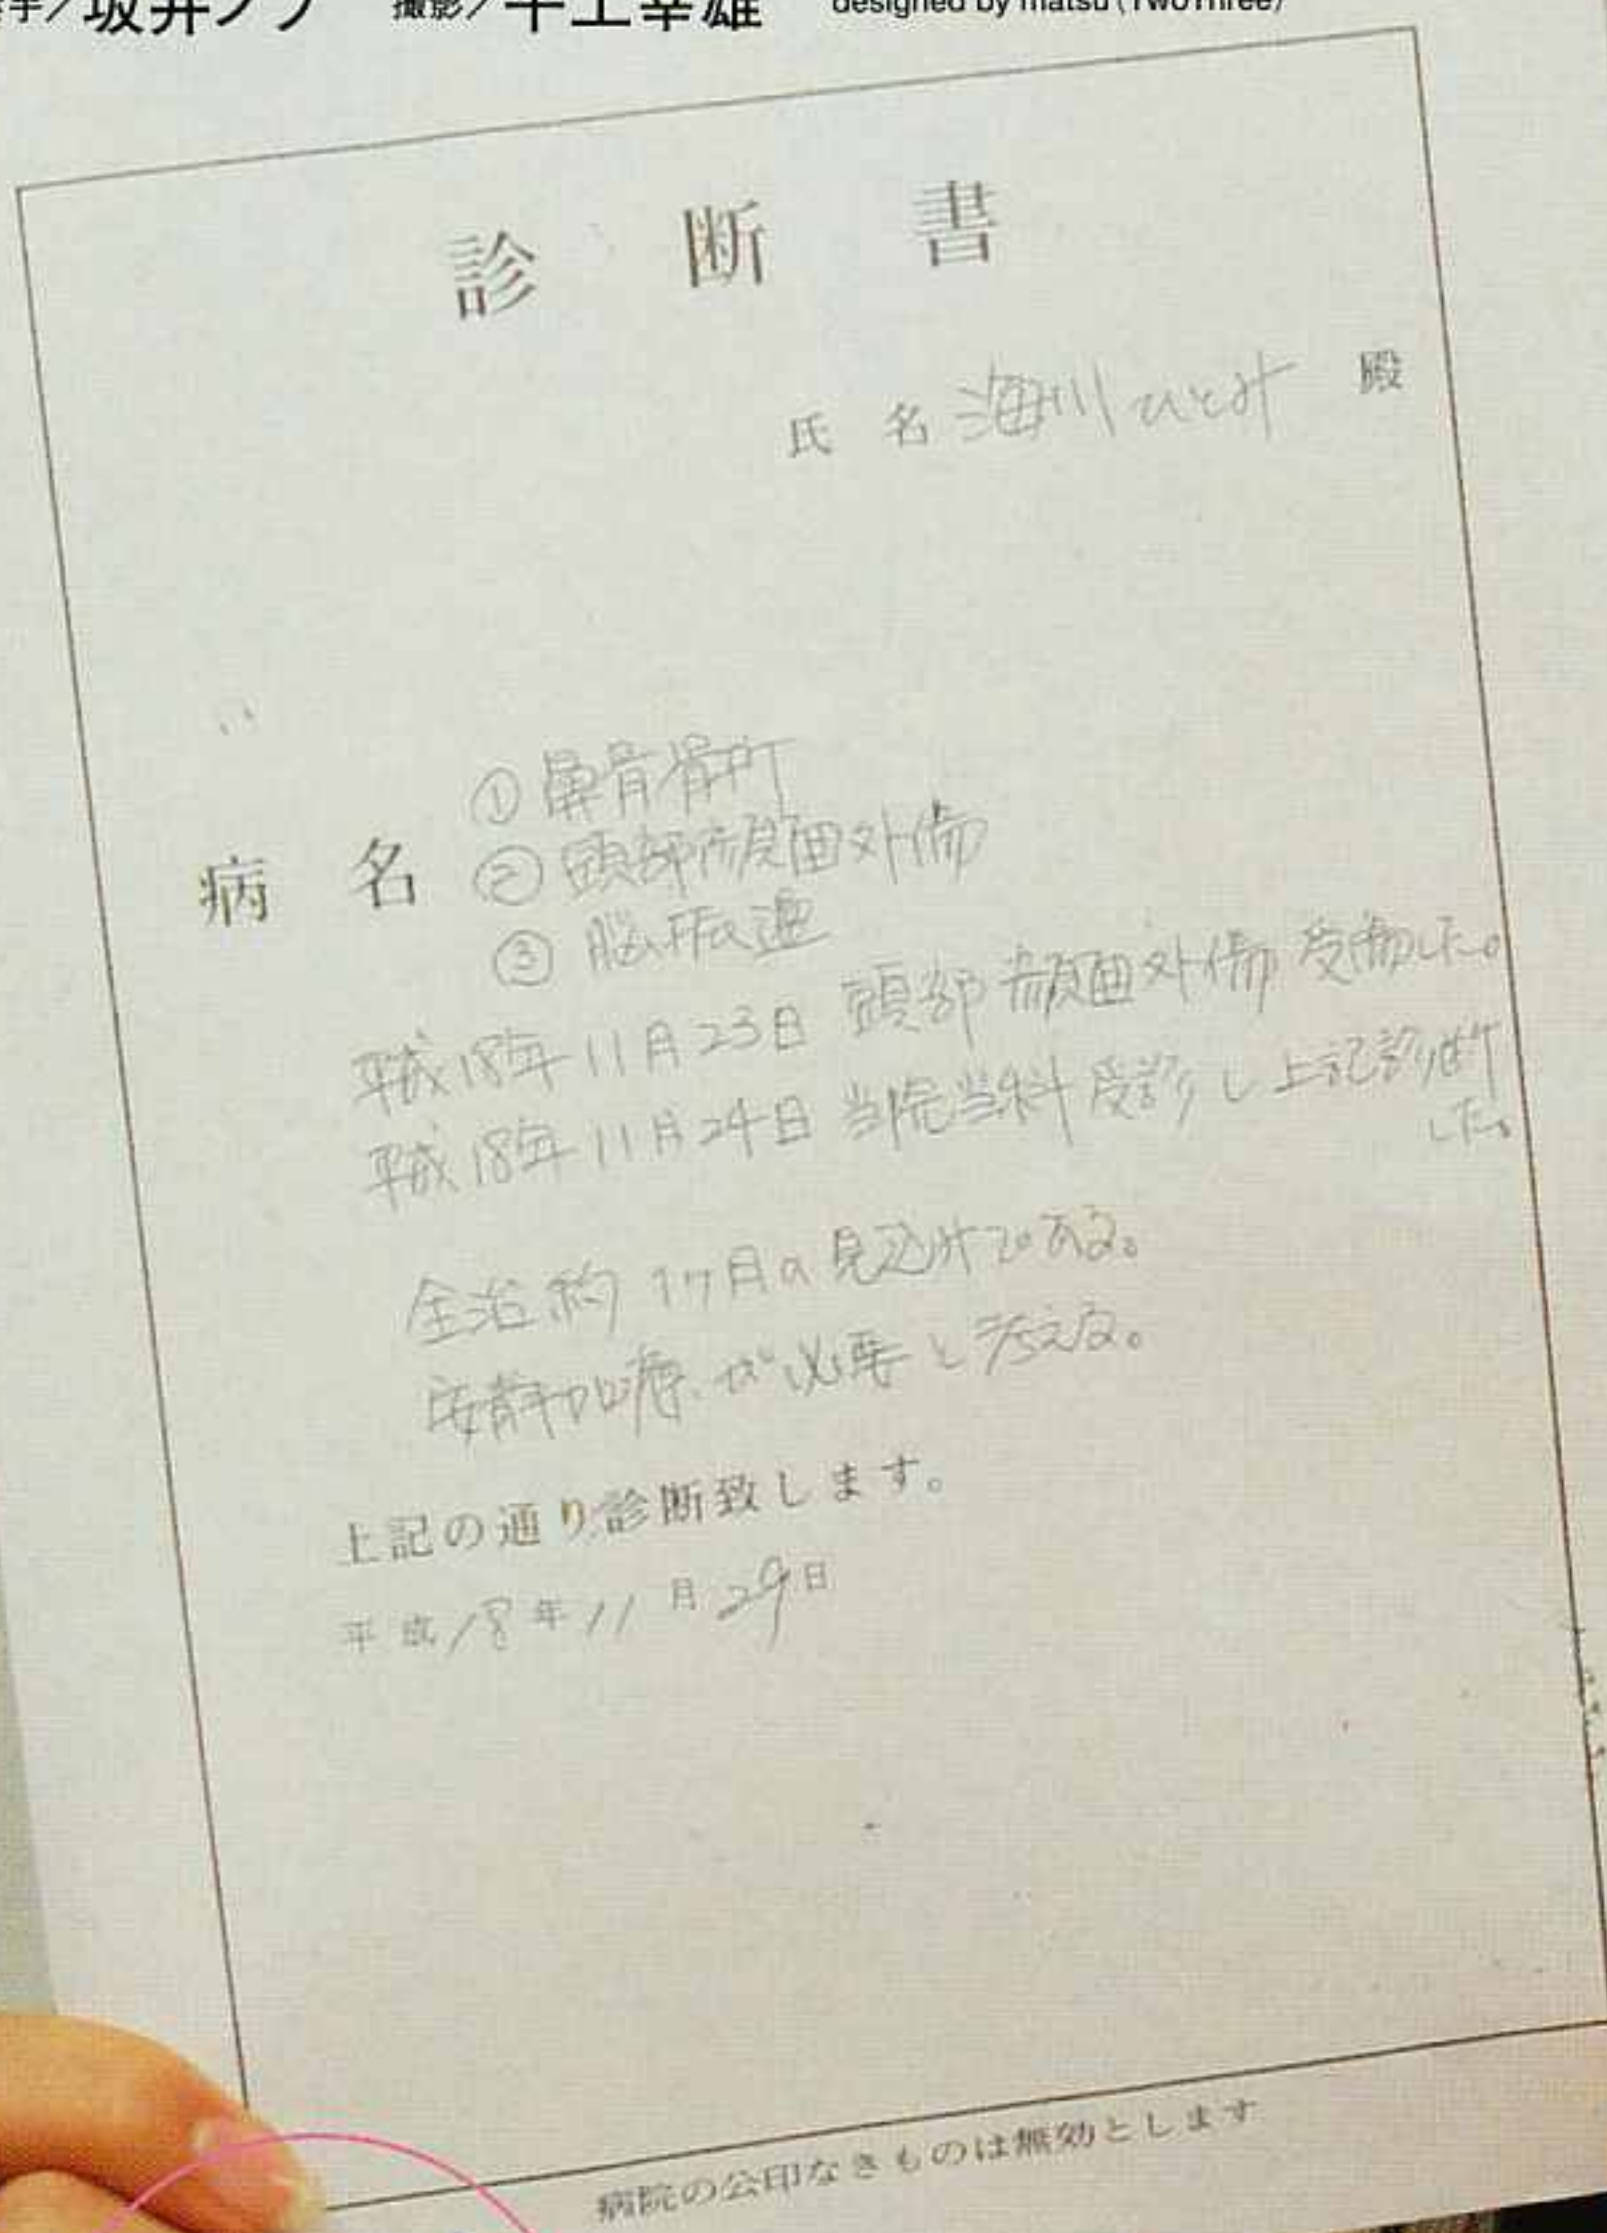 坂井ノブ 撮影／ designed by matsu (TwoThree)
診断書
氏名 海川ひとみ 殿
① 鼻骨骨折
病名 ② 頭部顔面外傷
③ 脳振盪
平成18年11月23日 頭部顔面外傷 受傷した。
平成18年11月24日 当院当科受診し 上記診断
した。
全治約1ヶ月の見込みである。
安静加療が必要と考える。
上記の通り診断致します。
平成18年11月29日
病院の公印なきものは無効とします